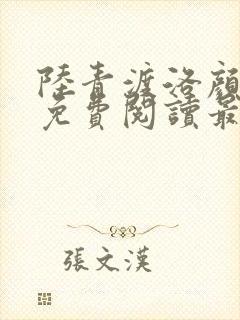 陸青渡洛顏
免費閱讀最
張文漢